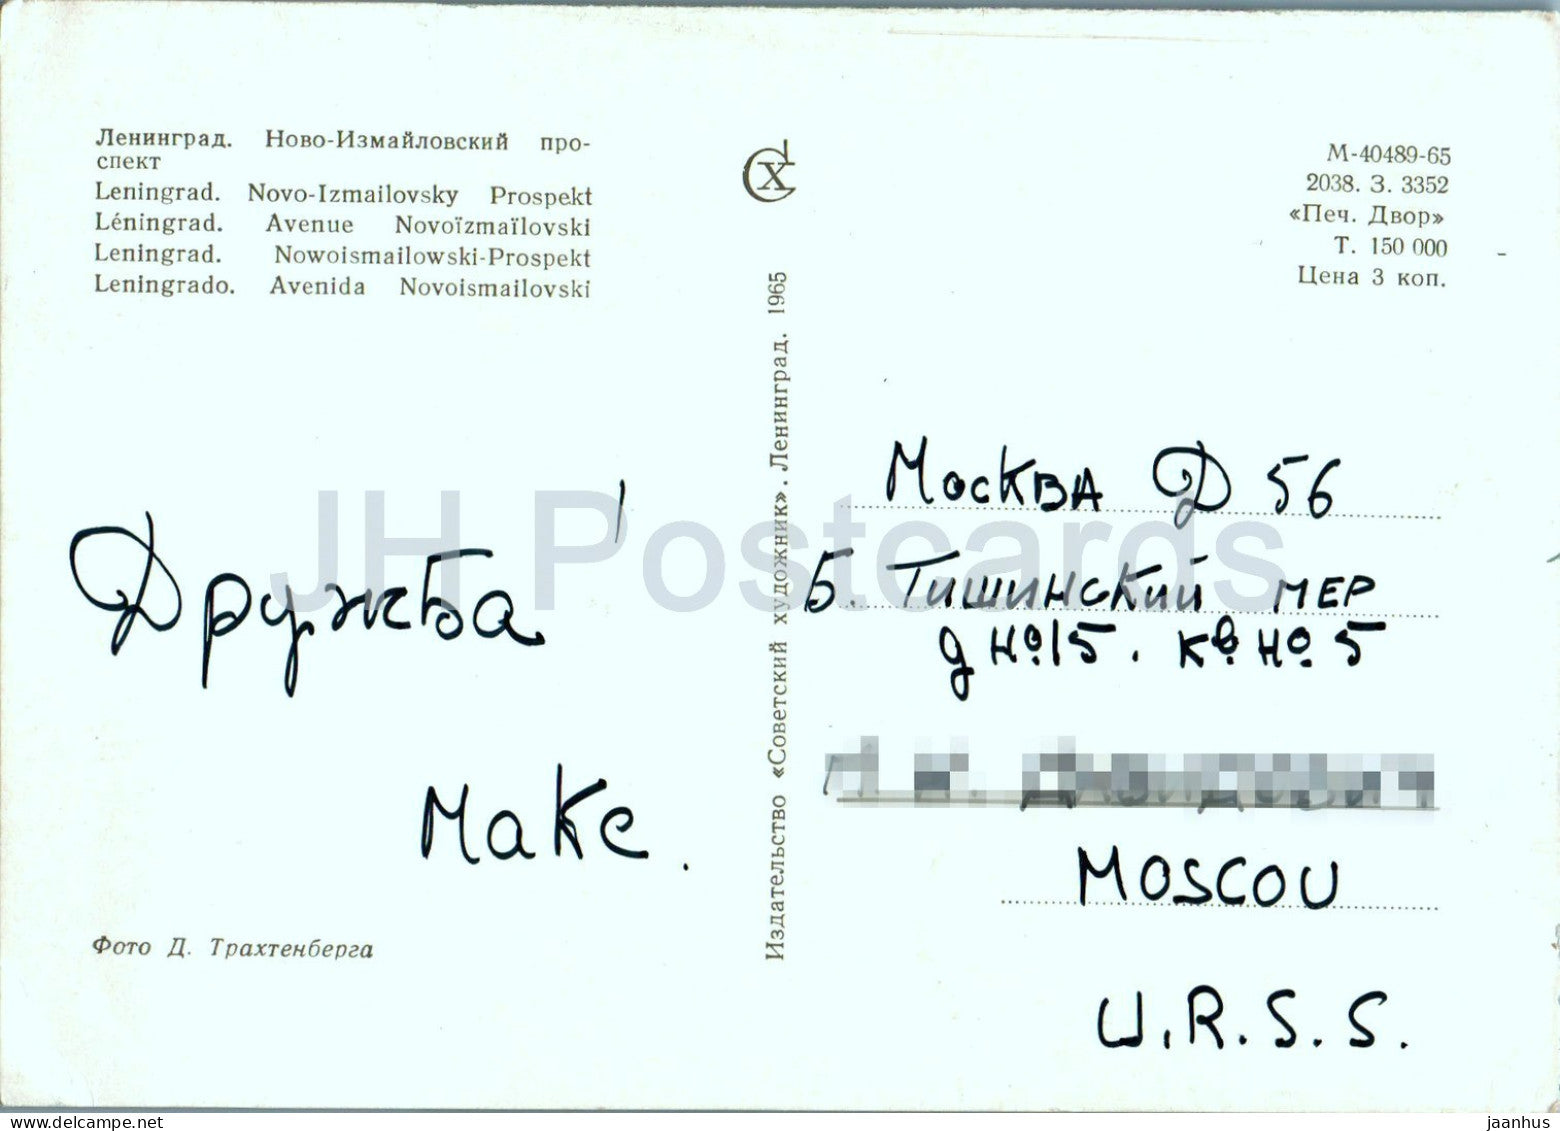 Ленинград. Ново-Измайловский про-
спект
Leningrad. Novo-Izmailovsky Prospekt
Léningrad. Avenue Novoïzmaïlovski
Leningrad. Nowoismailowski-Prospekt
Leningrado. Avenida Novoismailovski
Дружба!
Макс.
Фото Д. Трахтенберга
СХ
Издательство «Советский художник». Ленинград. 1965
М-40489-65
2038. З. 3352
«Печ. Двор»
Т. 150 000
Цена 3 коп.
Москва Д 56
Б. Тишинский пер
д но 15. кв. но 5
MOSCOU
U.R.S.S.
JH Postcards
delcampe.net
jaanhus